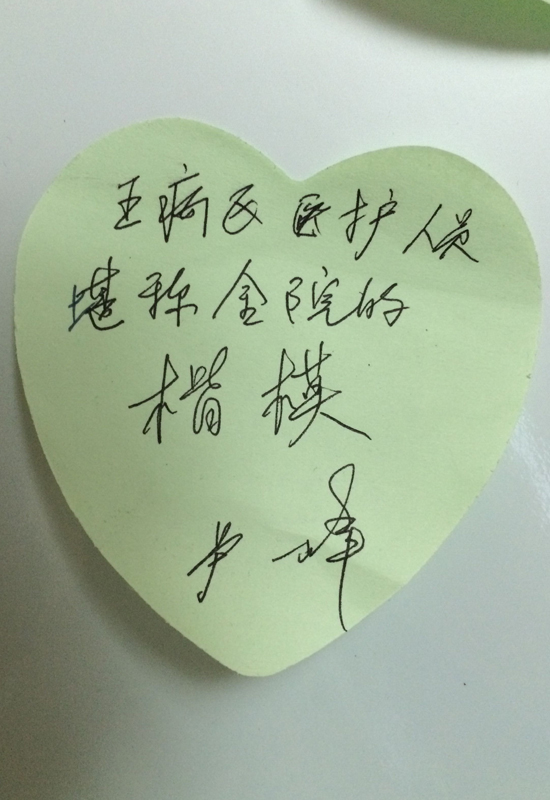 五病区医护人员
堪称全院的
楷模
尹峰